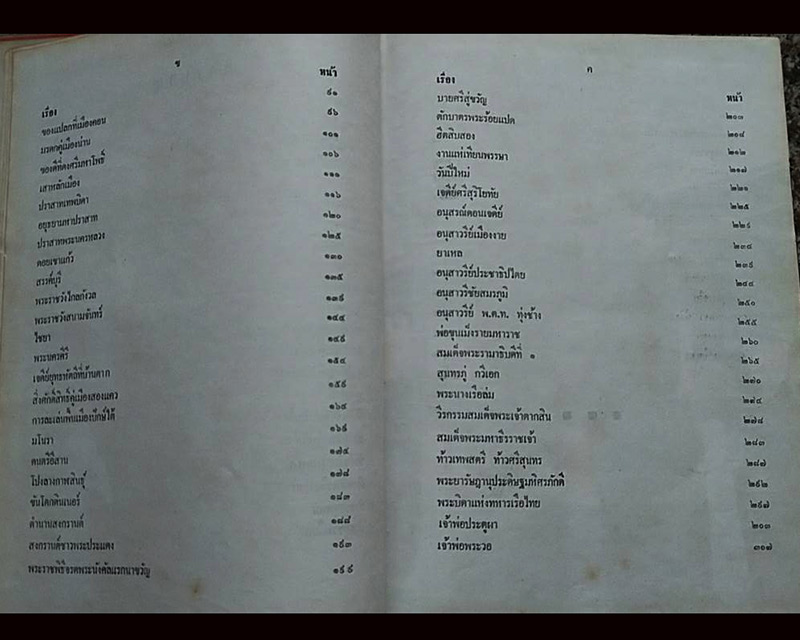 ข
หน้า
เรื่อง
ของแปลกที่เมืองคอน ๙๑
มรดกคู่เมืองน่าน ๙๖
ของดีที่ดงศรีมหาโพธิ์ ๑๐๑
เสาหลักเมือง ๑๐๖
ปราสาทเทพบิดา ๑๑๑
อยุธยามหาปราสาท ๑๑๖
ปราสาทพระนครหลวง ๑๒๐
ดอยเขาแก้ว ๑๒๕
สรรค์บุรี ๑๓๐
พระราชวังไกลกังวล ๑๓๕
พระราชวังสนามจันทร์ ๑๓๙
ไชยา ๑๔๔
พระนครคีรี ๑๔๙
เจดีย์ยุทธหัตถีที่บ้านตาก ๑๕๔
สิ่งศักดิ์สิทธิ์คู่เมืองสองแคว ๑๕๙
การละเล่นพื้นเมืองปักษ์ใต้ ๑๖๔
มโนรา ๑๖๙
ดนตรีอีสาน ๑๗๔
โปงลางกาฬสินธุ์ ๑๗๘
ขันโตกดินเนอร์ ๑๘๓
ตำนานสงกรานต์ ๑๘๘
สงกรานต์ชาวพระประแดง ๑๙๓
พระราชพิธีจรดพระนังคัลแรกนาขวัญ ๑๙๙
ค
เรื่อง
หน้า
บายศรีสู่ขวัญ ๒๐๓
ตักบาตรพระร้อยแปด ๒๐๘
ฮีตสิบสอง ๒๑๒
งานแห่เทียนพรรษา ๒๑๗
วันปีใหม่ ๒๒๑
เจดีย์ศรีสุริโยทัย ๒๒๕
อนุสรณ์ดอนเจดีย์ ๒๒๙
อนุสาวรีย์เมืองงาย ๒๓๔
ยาเหล ๒๓๙
อนุสาวรีย์ประชาธิปไตย ๒๔๔
อนุสาวรีชัยสมรภูมิ ๒๕๐
อนุสาวรีย์ พ.ต.ท. ทุ่งช้าง ๒๕๕
พ่อขุนเม็งรายมหาราช ๒๖๐
สมเด็จพระรามาธิบดีที่ ๑ ๒๖๕
สุนทรภู่ กวีเอก ๒๗๐
พระนางเรือล่ม ๒๗๔
วีรกรรมสมเด็จพระเจ้าตากสิน ๒๗๘
สมเด็จพระมหาธีรราชเจ้า ๒๘๓
ท้าวเทพสตรี ท้าวศรีสุนทร ๒๘๗
พระยารัษฎานุประดิษฐมหิศรภักดี ๒๙๒
พระบิดาแห่งทหารเรือไทย ๒๙๗
เจ้าพ่อประตูผา ๓๐๓
เจ้าพ่อพระวอ ๓๐๗